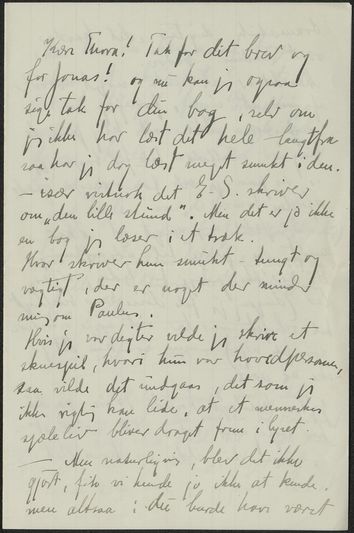 Kære Thora! Tak for dit brev og
for Jonas! og nu kan jeg ogsaa
sige tak for din bog, selv om
jeg ikke har læst det hele - langtfra
saa har jeg dog læst meget smukt i den.
- især virkede det E-S. skriver
om "den lille stund". Men det er jo ikke
en bog jeg læser i et træk.
Hvor skriver hun smukt - tungt og
vægtigt, der er noget der minder
mig om Paulus.
Hvis jeg var digter vilde jeg skrive et
skuespil, hvori hun var hovedpersonen,
saa vilde det indgaas, det som jeg
ikke rigtig kan lide, at et menneskes
sjæleliv bliver draget frem i lyset.
- Men naturligvis, blev det ikke
gjort, fik vi hende jo ikke at kende.
men altsaa i det burde have været